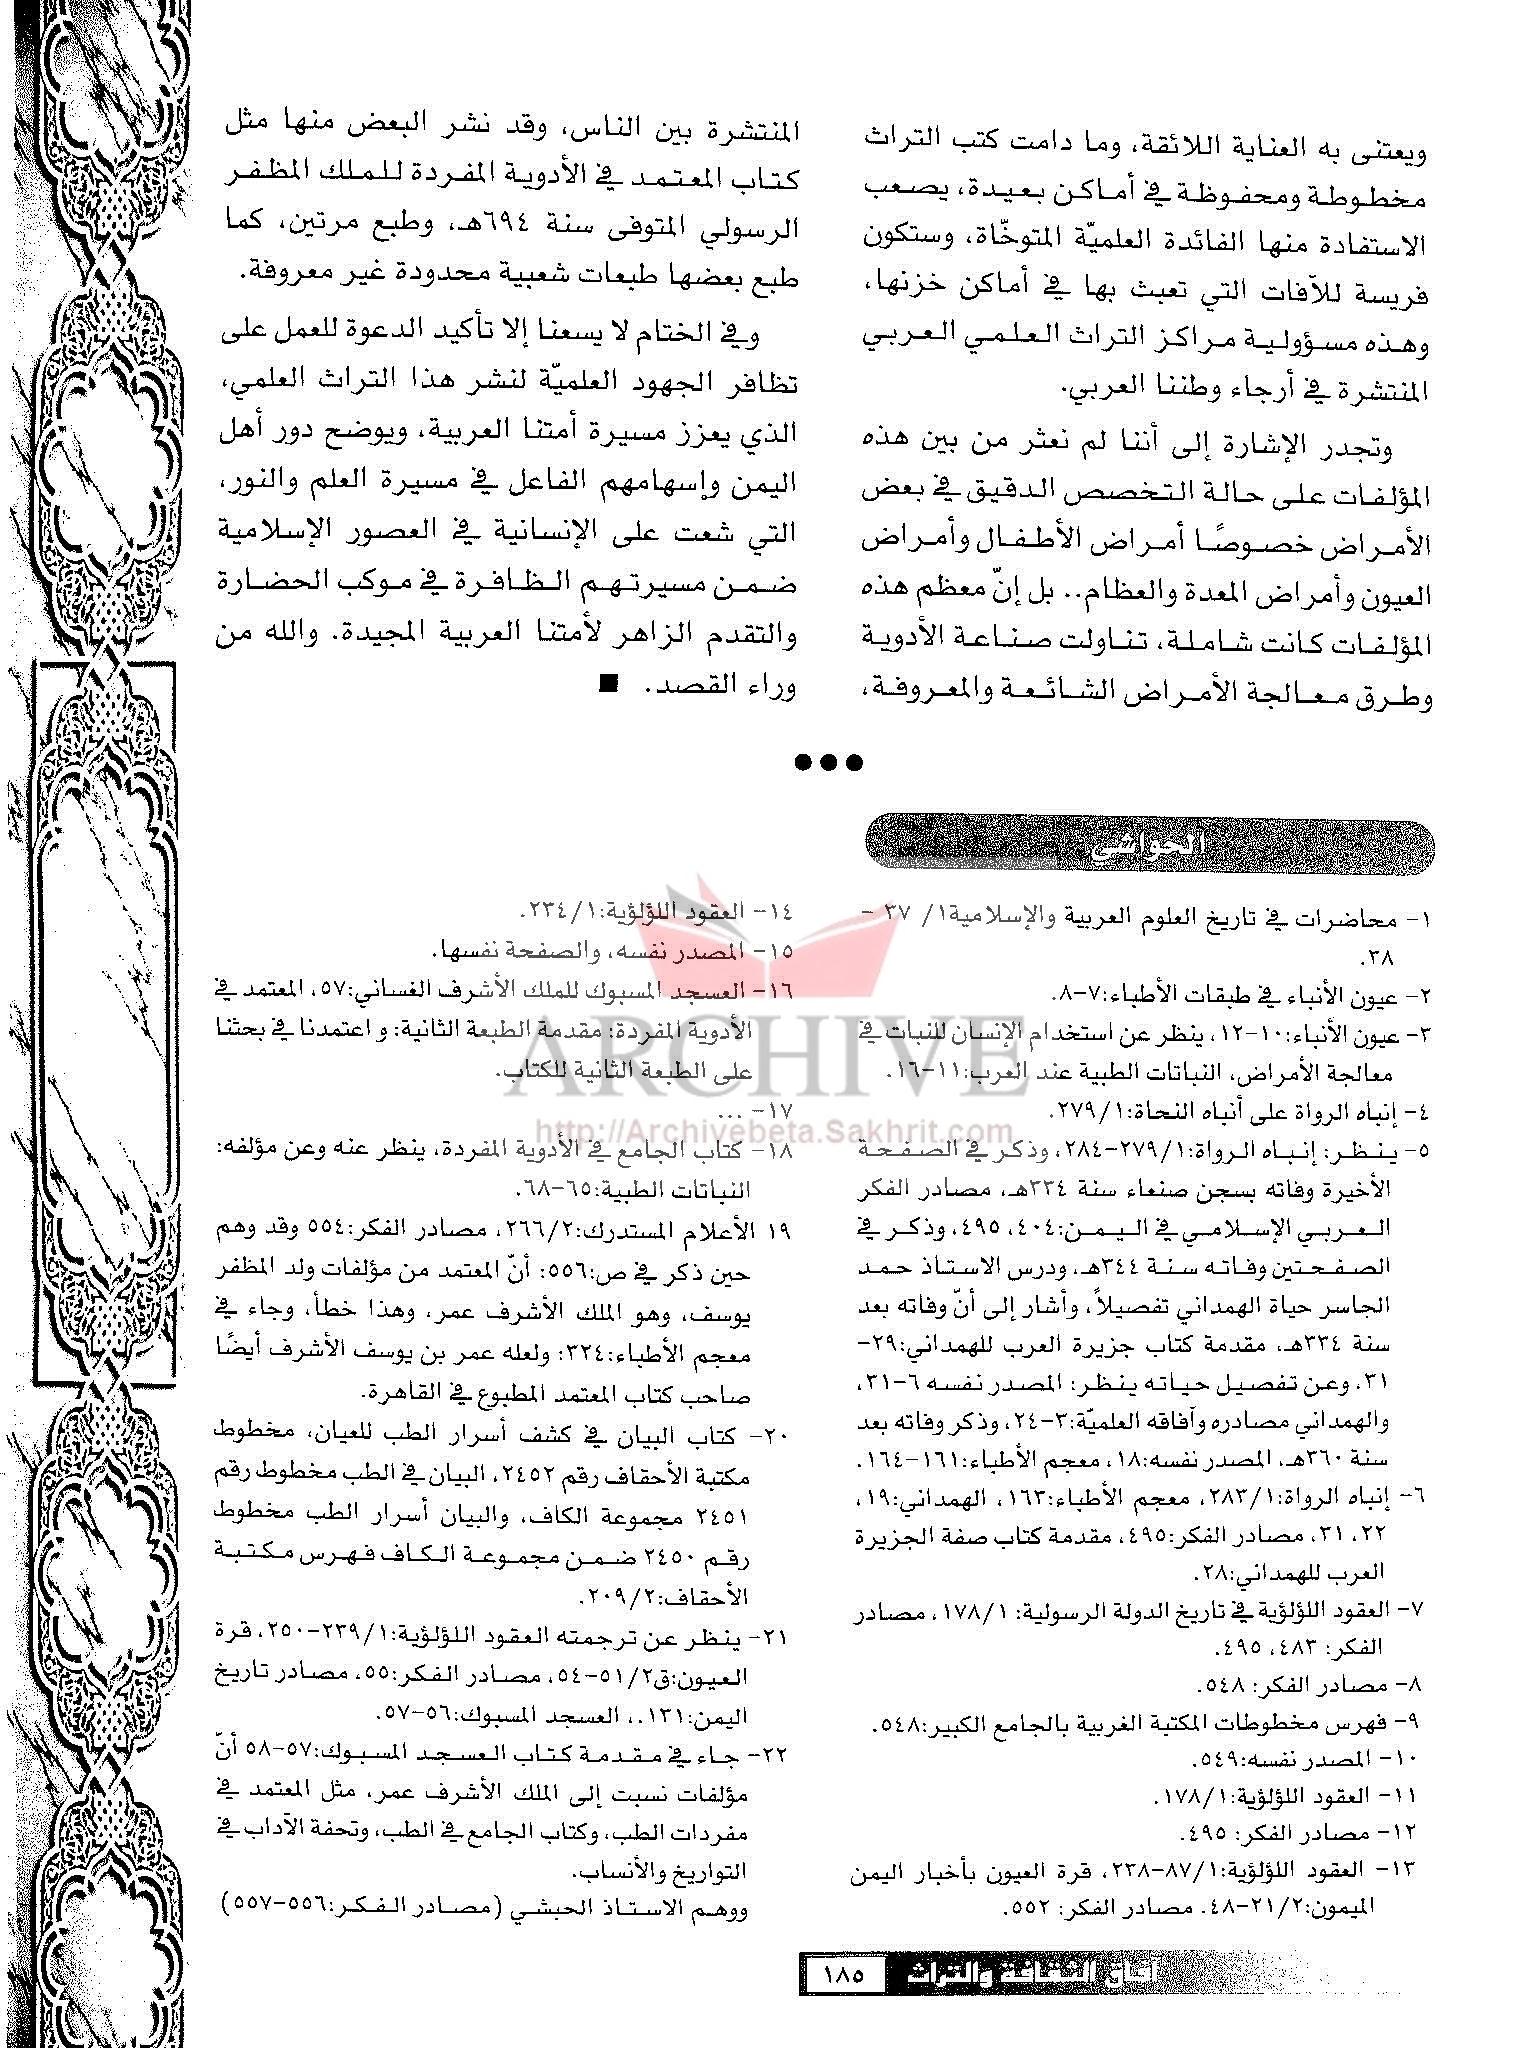 ويعتنى به العناية اللائقة، وما دامت كتب التراث
مخطوطة ومحفوظة في أماكن بعيدة، يصعب
الاستفادة منها الفائدة العلميّة المتوخّاة، وستكون
فريسة للآفات التي تعبث بها في أماكن خزنها،
وهذه مسؤولية مراكز التراث العلمي العربي
المنتشرة في أرجاء وطننا العربي.
وتجدر الإشارة إلى أننا لم نعثر من بين هذه
المؤلفات على حالة التخصص الدقيق في بعض
الأمراض خصوصًا أمراض الأطفال وأمراض
العيون وأمراض المعدة والعظام.. بل إنّ معظم هذه
المؤلفات كانت شاملة، تناولت صناعة الأدوية
وطرق معالجة الأمراض الشائعة والمعروفة،
المنتشرة بين الناس، وقد نشر البعض منها مثل
كتاب المعتمد في الأدوية المفردة للملك المظفر
الرسولي المتوفى سنة ٦٩٤هـ، وطبع مرتين، كما
طبع بعضها طبعات شعبية محدودة غير معروفة.
وفي الختام لا يسعنا إلا تأكيد الدعوة للعمل على
تظافر الجهود العلميّة لنشر هذا التراث العلمي،
الذي يعزز مسيرة أمتنا العربية، ويوضح دور أهل
اليمن وإسهامهم الفاعل في مسيرة العلم والنور،
التي شعت على الإنسانية في العصور الإسلامية
ضمن مسيرتهم الظافرة في موكب الحضارة
والتقدم الزاهر لأمتنا العربية المجيدة. والله من
وراء القصد. ■
●●●
الحواشي
١- محاضرات في تاريخ العلوم العربية والإسلامية١/ ٣٧ -
٣٨.
٢- عيون الأنباء في طبقات الأطباء:٧-٨.
٣- عيون الأنباء:١٠-١٢، ينظر عن استخدام الإنسان للنبات في
معالجة الأمراض، النباتات الطبية عند العرب:١١-١٦.
٤- إنباه الرواة على أنباه النحاة:٢٧٩/١.
٥- ينظر: إنباه الرواة:٢٧٩/١-٢٨٤، وذكر في الصفحة
الأخيرة وفاته بسجن صنعاء سنة ٣٣٤هـ، مصادر الفكر
العربي الإسلامي في اليمن:٤٠٤، ٤٩٥، وذكر في
الصفحتين وفاته سنة ٣٤٤هـ، ودرس الاستاذ حمد
الجاسر حياة الهمداني تفصيلاً، وأشار إلى أنّ وفاته بعد
سنة ٣٣٤هـ، مقدمة كتاب جزيرة العرب للهمداني:٢٩-
٣١، وعن تفصيل حياته ينظر: المصدر نفسه ٦-٣١،
والهمداني مصادره وآفاقه العلميّة:٣-٢٤، وذكر وفاته بعد
سنة ٣٦٠هـ، المصدر نفسه:١٨، معجم الأطباء:١٦١-١٦٤.
٦- إنباه الرواة:٢٨٣/١، معجم الأطباء:١٦٣، الهمداني:١٩،
٢٢، ٣١، مصادر الفكر:٤٩٥، مقدمة كتاب صفة الجزيرة
العرب للهمداني:٢٨.
٧- العقود اللؤلؤية في تاريخ الدولة الرسولية: ١٧٨/١، مصادر
الفكر: ٤٨٣، ٤٩٥.
٨- مصادر الفكر: ٥٤٨.
٩- فهرس مخطوطات المكتبة الغربية بالجامع الكبير:٥٤٨.
١٠- المصدر نفسه:٥٤٩.
١١- العقود اللؤلؤية:١٧٨/١.
١٢- مصادر الفكر: ٤٩٥.
١٣- العقود اللؤلؤية:٨٧/١-٢٣٨، قرة العيون بأخبار اليمن
الميمون:٢١/٢-٤٨. مصادر الفكر: ٥٥٢.
١٤- العقود اللؤلؤية:٢٣٤/١.
١٥- المصدر نفسه، والصفحة نفسها.
١٦- العسجد المسبوك للملك الأشرف الغساني:٥٧، المعتمد في
الأدوية المفردة: مقدمة الطبعة الثانية: و اعتمدنا في بحثنا
على الطبعة الثانية للكتاب.
١٧- ...
١٨- كتاب الجامع في الأدوية المفردة، ينظر عنه وعن مؤلفه:
النباتات الطبية:٦٥-٦٨.
١٩ الأعلام المستدرك:٢٦٦/٢، مصادر الفكر:٥٥٤ وقد وهم
حين ذكر في ص:٥٥٦: أنّ المعتمد من مؤلفات ولد المظفر
يوسف، وهو الملك الأشرف عمر، وهذا خطأ، وجاء في
معجم الأطباء:٣٢٤: ولعله عمر بن يوسف الأشرف أيضًا
صاحب كتاب المعتمد المطبوع في القاهرة.
٢٠- كتاب البيان في كشف أسرار الطب للعيان، مخطوط
مكتبة الأحقاف رقم ٢٤٥٢، البيان في الطب مخطوط رقم
٢٤٥١ مجموعة الكاف، والبيان أسرار الطب مخطوط
رقم ٢٤٥٠ ضمن مجموعة الكاف فهرس مكتبة
الأحقاف:٢٠٩/٢.
٢١- ينظر عن ترجمته العقود اللؤلؤية:٢٣٩/١-٢٥٠، قرة
العيون:ق٥١/٢-٥٤، مصادر الفكر:٥٥، مصادر تاريخ
اليمن:١٣١.، العسجد المسبوك:٥٦-٥٧.
٢٢- جاء في مقدمة كتاب العسجد المسبوك:٥٧-٥٨ أنّ
مؤلفات نسبت إلى الملك الأشرف عمر، مثل المعتمد في
مفردات الطب، وكتاب الجامع في الطب، وتحفة الآداب في
التواريخ والأنساب.
ووهم الاستاذ الحبشي (مصادر الفكر:٥٥٦-٥٥٧)
ARCHIVE
http://Archivebeta.Sakhrit.com
آفاق الثقافة والتراث ١٨٥